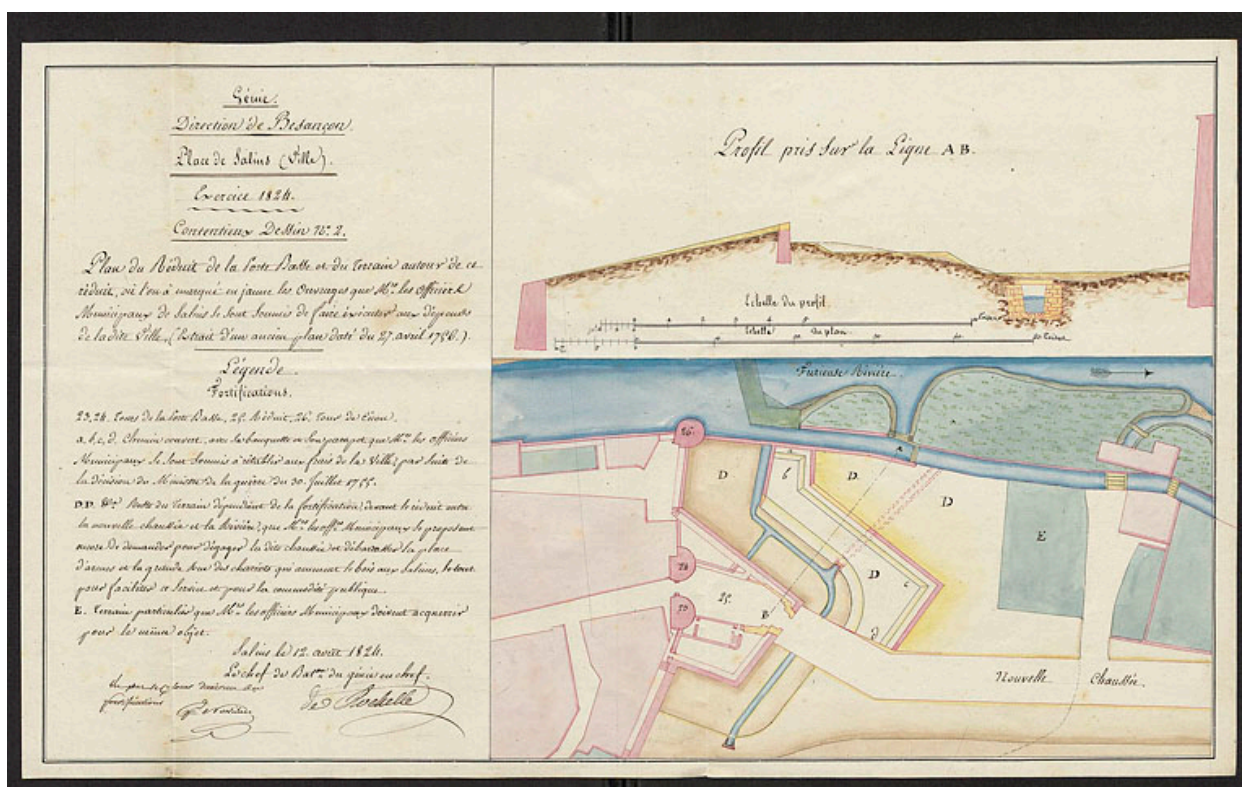 Génie.
Direction de Besançon.
Place de Salins (Ville).
Exercice 1824.
Contentieux Dessin N°. 2.
Plan du Réduit de la Porte Basse et du Terrain autour de ce
réduit, où l'on a marqué en jaune les Ouvrages que Mrs. les officiers
Municipaux de Salins se sont soumis de faire exécuter aux dépens
de la dite Ville, (Extrait d'un ancien plan daté du 27. avril 1756.)
Légende
Fortifications.
23, 24. Tours de la Porte Basse, 25. Réduit, 26. Tour de
a, b, c, d. Chemin couvert, avec sa banquette et son parapet que Mrs. les officiers
Municipaux se sont soumis à rétablir aux frais de la Ville, par suite de
la décision du Ministre de la guerre du 30. Juillet 1755.
D.D. &c. Reste du Terrain dépendant de la fortification, devant le réduit entre
la nouvelle chaussée et la Rivière, que Mrs. les offrs. Municipaux se proposent
encore de demander pour dégager la dite chaussée et débarrasser la place
d'armes et la grande rue des chariots qui amenent le bois aux Salines, le tout
pour faciliter ce Service et pour la commodité publique.
E. Terrain particulier que Mrs. les officiers Municipaux doivent acquerrir
pour le même objet.
Salins le 12. août 1824.
Le chef de Baton. du génie en chef.
de Rochelle
fortifications
Profil pris sur la Ligne AB.
Echelle du profil.
Echelle du plan.
Furieuse Rivière.
26.
D
b
D.
A
D
E
24
25.
D
c
B
d
Nouvelle Chaussée.